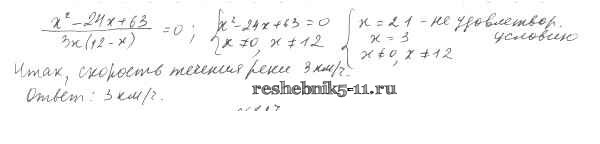 x² - 24x + 63 / 3x(12 - x) = 0; { x² - 24x + 63 = 0 x ≠ 0, x ≠ 12 { x = 21 - не удовлетвор. условию x = 3 x ≠ 0, x ≠ 12
Итак, скорость течения реки 3 км/ч.
Ответ: 3 км/ч.
reshebnik5-11.ru